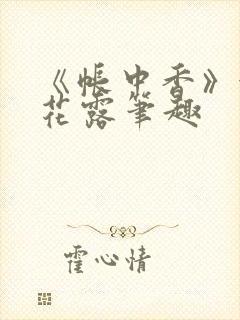 《帐中香》
花露笔趣
霍心情